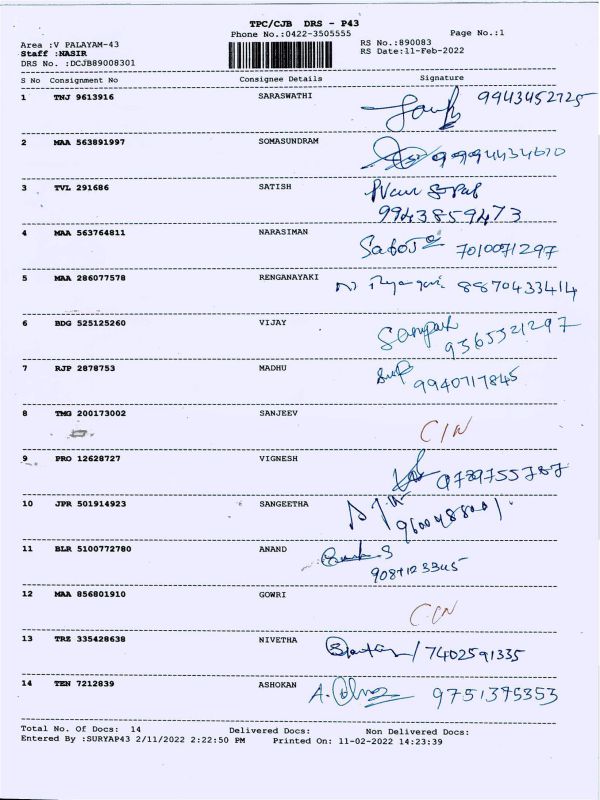 TPC/CJB DRS - P43
Phone No.:0422-3505555
Page No.:1
Area :V PALAYAM-43
RS No.:890083
Staff :NASIR
RS Date:11-Feb-2022
DRS No. :DCJB89008301
S No Consignment No Consignee Details Signature
1 TNJ 9613916 SARASWATHI 9943452725
2 MAA 563891997 SOMASUNDRAM 9994434670
3 TVL 291686 SATISH
9943859473
4 MAA 563764811 NARASIMAN 7010071297
5 MAA 286077578 RENGANAYAKI 8870433414
6 BDG 525125260 VIJAY Sampath
9365321297
7 RJP 2878753 MADHU
9940717845
8 TMG 200173002 SANJEEV
C/N
9 PRO 12628727 VIGNESH
9789755787
10 JPR 501914923 SANGEETHA
11 BLR 5100772780 ANAND
12 MAA 856801910 GOWRI
C/N
13 TRZ 335428638 NIVETHA
/ 7402591335
14 TEN 7212839 ASHOKAN 9751395353
Total No. Of Docs: 14 Delivered Docs: Non Delivered Docs:
Entered By :SURYAP43 2/11/2022 2:22:50 PM Printed On: 11-02-2022 14:23:39